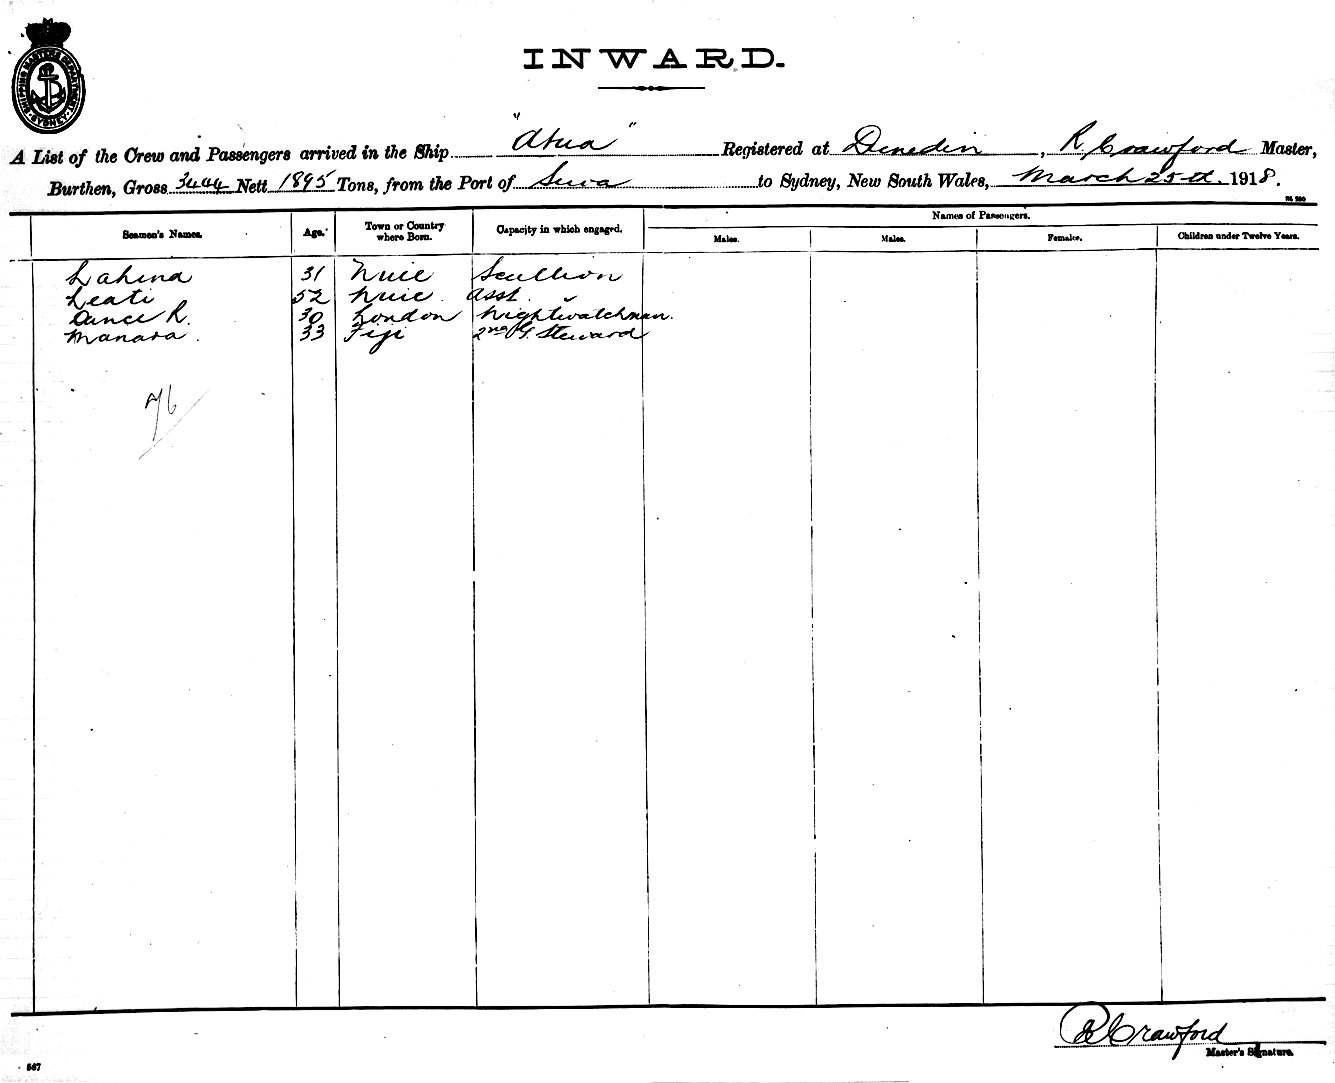 SHIPPING MASTER'S DEPARTMENT SYDNEY
INWARD.
A List of the Crew and Passengers arrived in the Ship "Atua" Registered at Dunedin, R. Crawford Master,
Burthen, Gross 3444 Nett 1895 Tons, from the Port of Suva to Sydney, New South Wales, March 25th 1918.
Names of Passengers.
Seamen's Names. Age. Town or Country where Born. Capacity in which engaged. Males. Males. Females. Children under Twelve Years.
Lahina 31 Niue Scullion
Leati 52 Niue Asst. "
Dance R. 30 London Nightwatchman.
Manasa. 33 Fiji 2nd Steward
76
R Crawford
Master's Signature.
567